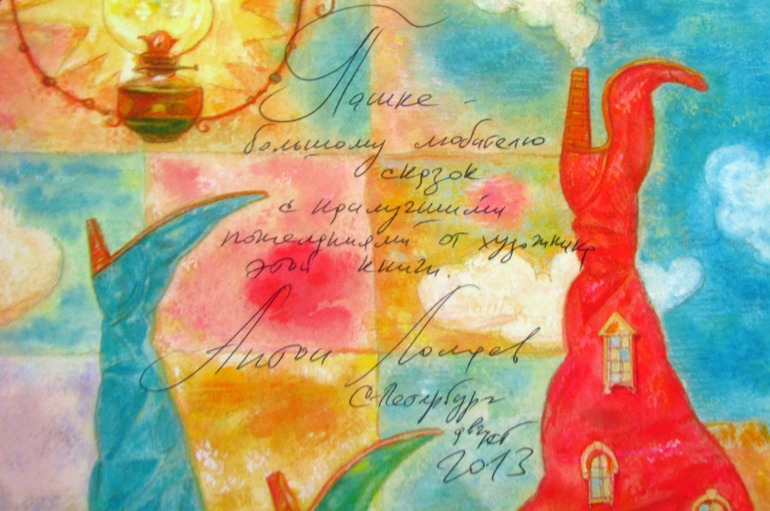 Пашке -
большому любителю
сказок
с наилучшими
пожеланиями от художника
этой книги.
Антон Ломаев
С-Петербург
август
2013